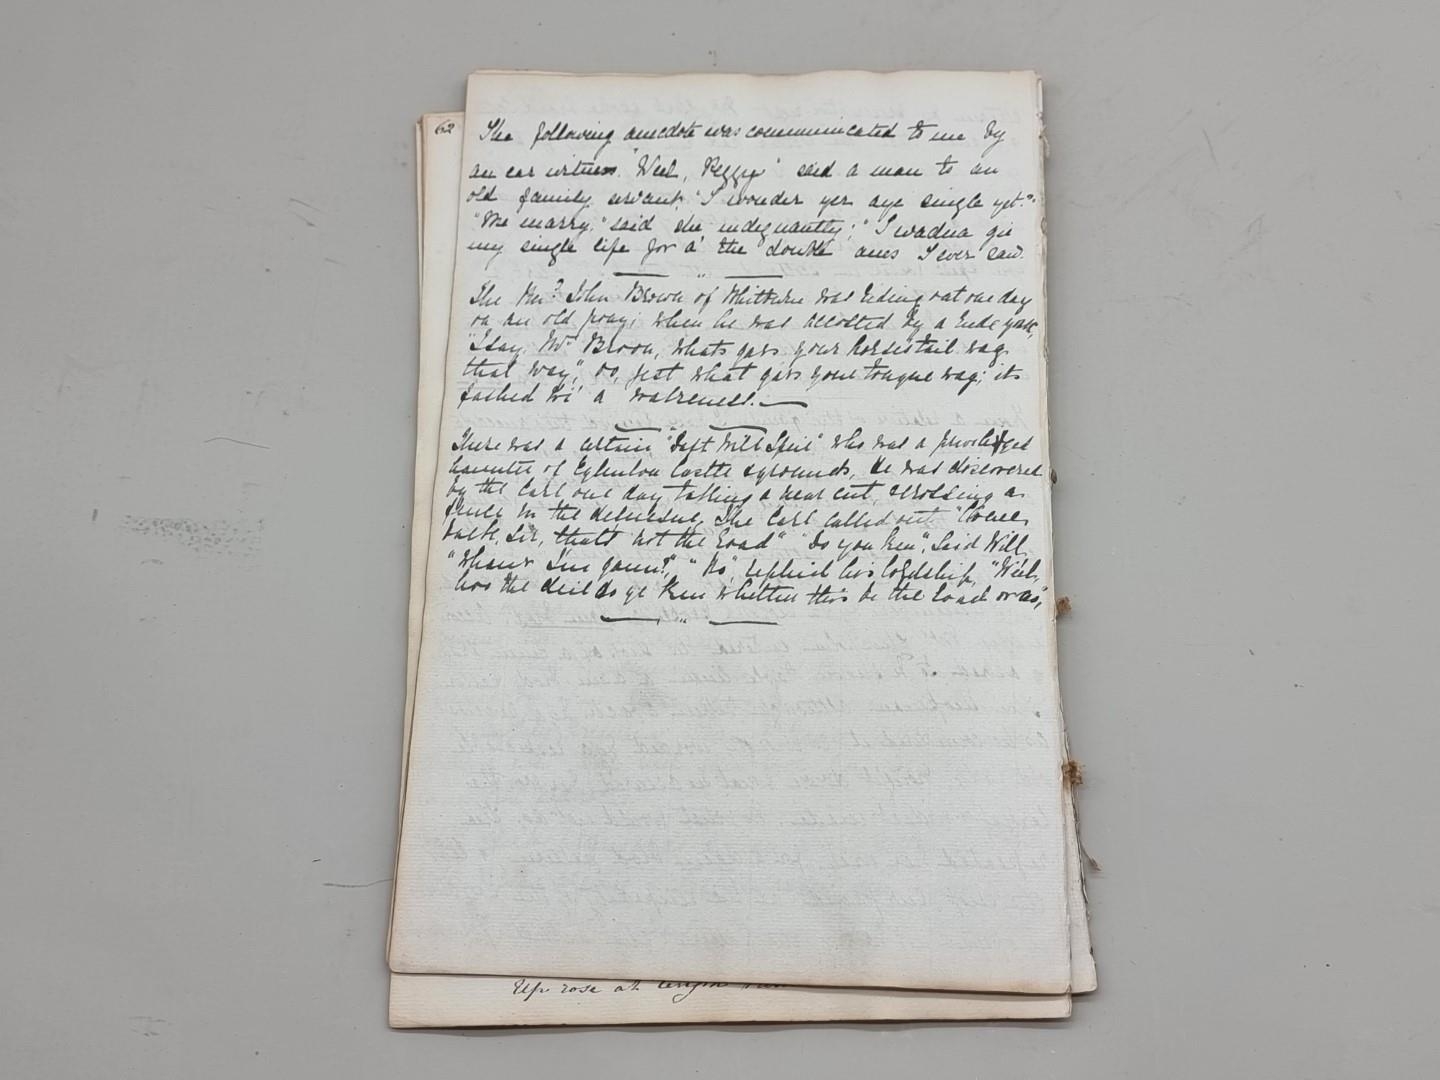 62
The following anecdote was communicated to me by
an ear witness "Weel, Peggy" said a man to an
old family servant, "I wonder yer aye single yet."
"Me marry," said she indignantly; "I wadna gie
my single life for a' the double anes I ever saw.
The Revd. John Brown of Whitburn was riding out one day
on an old pony; when he was accosted by a rude youth,
"I say, Mr Broon, what gars your horses tail wag
that way", "Oo, jest what gars your tongue wag; its
fashed wi' a wakeness.
There was a certain, "Daft Will Speir" who was a privileged
haunter of Eglinton Castle & grounds, He was discovered
by the Earl one day taking a near cut, & crossing a
fence in the demesne, The Earl called out, "Come
back, Sir, that's not the road" "Do you ken", said Will,
"Whaur I'm gaun?", "No", replied his lordship, "Weel,
hoo the deil do ye ken whether this be the road or no",
Up rose at length